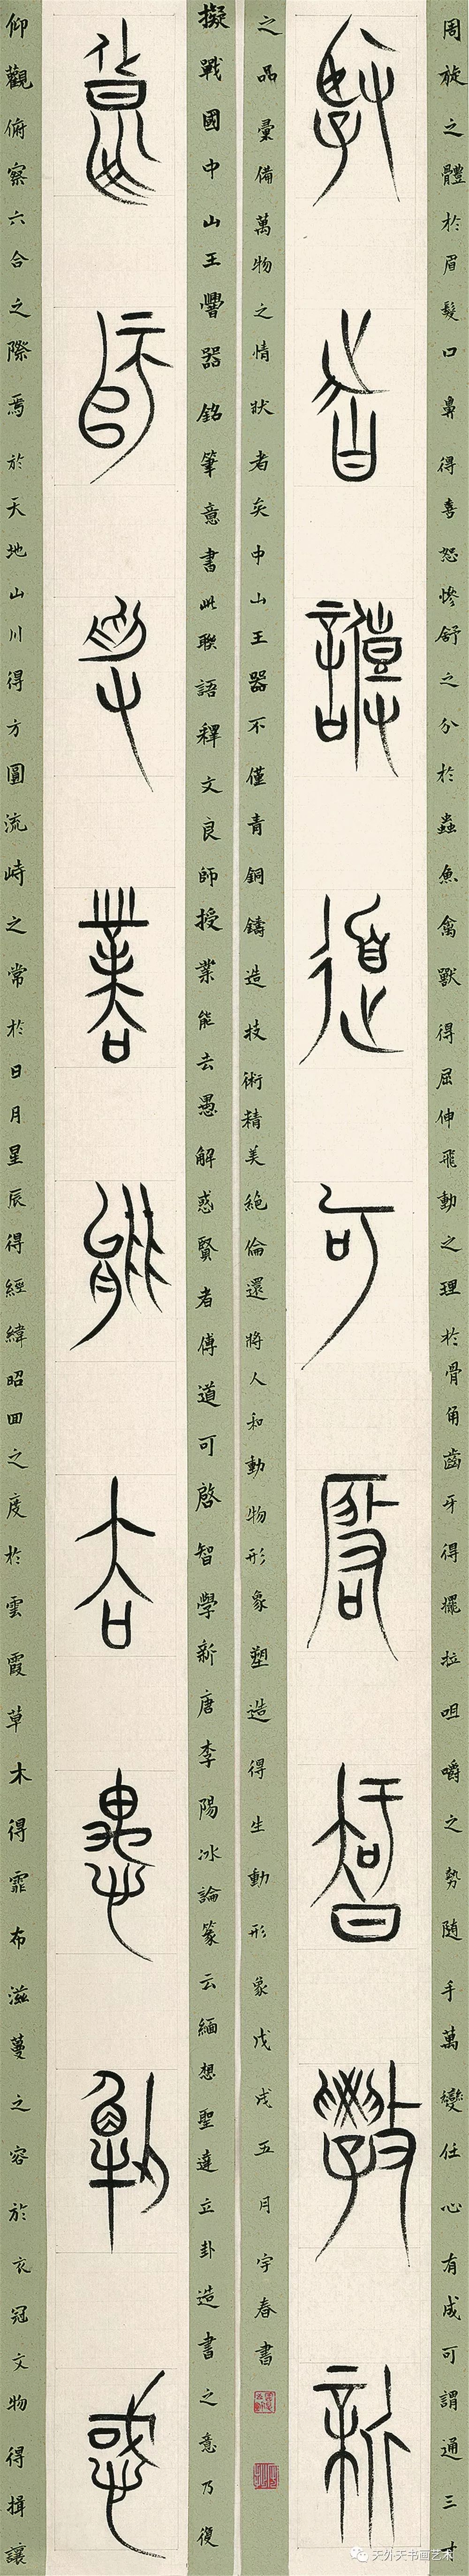 良師授業能去愚解惑
賢者傅道可啓智學新
擬戰國中山王器銘筆意書此聯語釋文良師授業能去愚解惑賢者傅道可啓智學新唐李陽冰論篆云緬想聖達立卦造書之意乃復
仰觀俯察六合之際焉於天地山川得方圓流峙之常於日月星辰得經緯昭回之度於雲霞草木得霏布滋蔓之容於衣冠文物得揖讓
周旋之體於眉髮口鼻得喜怒慘舒之分於蟲魚禽獸得屈伸飛動之理於骨角齒牙得擺拉咀嚼之勢隨手萬變任心有成可謂通三才
之品彙備萬物之情狀者矣中山王器不僅青銅鑄造技術精美絕倫還將人和動物形象塑造得生動形象戊戌五月宇春書
天外天书画艺术